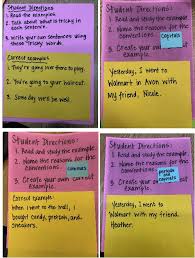 Student Directions
1. Read the examples.
2. Talk about what is tricky in
each sentence.
3. Write your own sentences using
these tricky words.
Correct examples:
1. They're going over there to play.
2. You're going to your haircut!
3. Some day we'll be well.
Student Directions:
1. Read and study the example.
2. Name the reasons for the
Capitals
3. Create your own
example.
Yesterday, I went to
Walmart in Avon with
my friend, Nicole.
Student Directions:
1. Read and study the example.
2. Name the reasons for the
conventions.
commas
3. Create your own correct
example.
Correct example:
When I went to the mall, I
bought candy, pretzels, and
sneakers.
Student Directions:
1. Read and study the example.
2. Name the reasons for the
conventions.
periods
and
capitals
3. Create your own
example.
Yesterday, I went to
Walmart with my friend,
Heather.